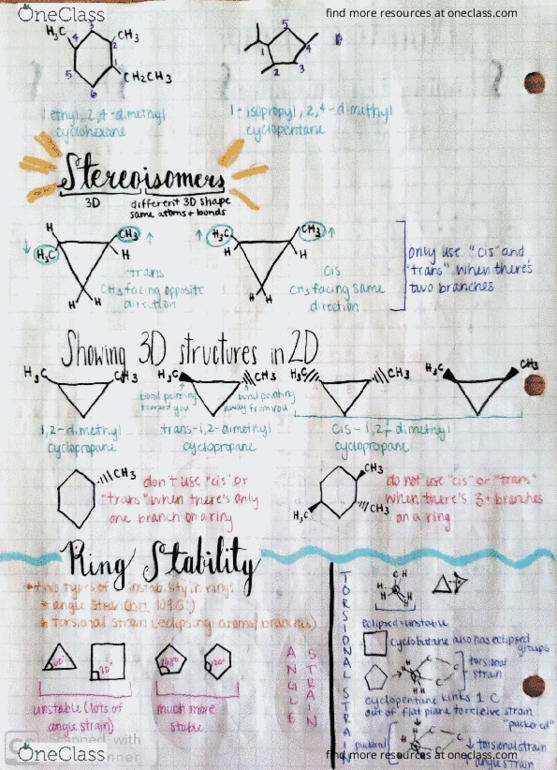 OneClass
find more resources at oneclass.com
H₃C
4
3
2
CH₃
1
CH₂CH₃
5
6
5
4
1
2
3
1 ethyl, 2,4-dimethyl
cyclohexane
1-isopropyl, 2,4-dimethyl
cyclopentane
Stereoisomers
3D
different 3D shape
same atoms + bonds
H
H
↓ H₃C
CH₃ ↑
H
H
trans
CH₃ facing opposite
direction
H
H
↑ H₃C
CH₃ ↑
H
H
cis
CH₃ facing same
direction
only use "cis" and
"trans" when there's
two branches
Showing 3D structures in 2D
H₃C
CH₃
H₃C
CH₃
H₃C
CH₃
H₃C
CH₃
bond pointing
toward you
bond pointing
away from you
1,2-dimethyl
cyclopropane
trans-1,2-dimethyl
cyclopropane
cis-1,2-dimethyl
cyclopropane
CH₃
don't use "cis" or
"trans" when there's only
one branch on a ring
CH₃
CH₃
H₃C
do not use "cis" or "trans"
when there's 3+ branches
on a ring
Ring Stability
two types of instability in rings
angle strain
torsional strain (eclipsing atoms/branches)
60°
90°
unstable (lots of
angle strain)
much more
stable
ANGLE
STRAIN
TORSIONAL STRAIN
eclipsed=unstable
cyclobutane also has eclipsed
groups
torsional
strain
cyclopentane kinks 1 C
out of flat plane to relieve strain
"puckered"
puckered
↓ torsional strain
angle strain
CS Scanned with
OneClass
find more resources at oneclass.com